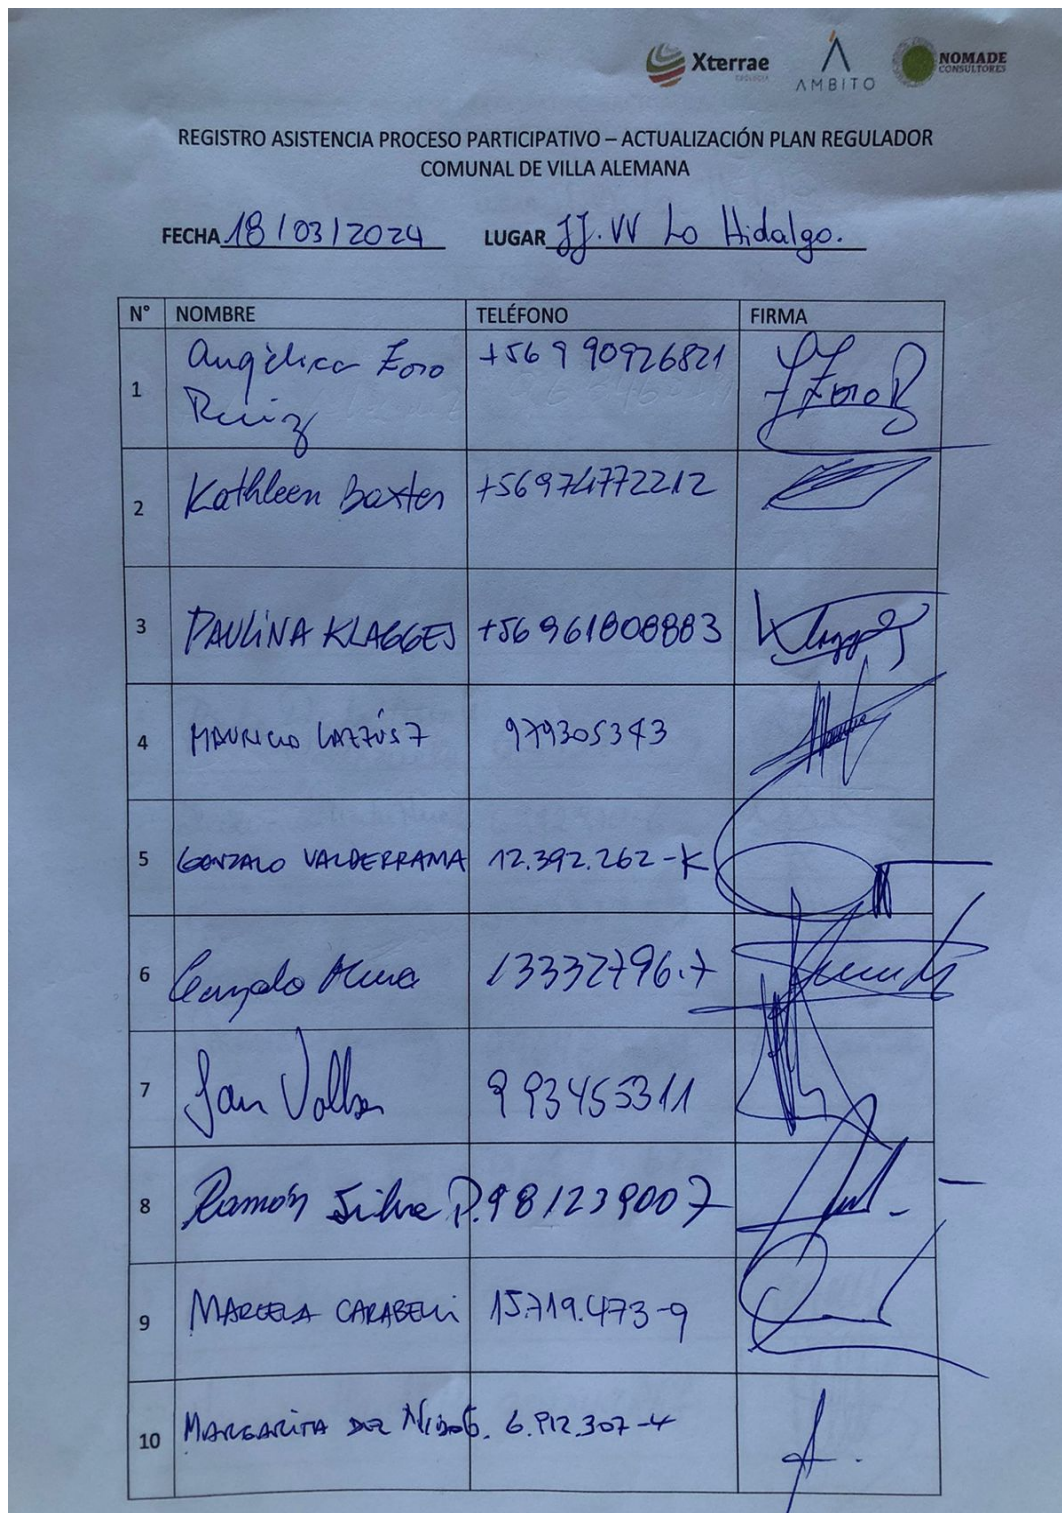 Xterrae
GEOLOGÍA
AMBITO
NOMADE
CONSULTORES
REGISTRO ASISTENCIA PROCESO PARTICIPATIVO – ACTUALIZACIÓN PLAN REGULADOR
COMUNAL DE VILLA ALEMANA
FECHA 18/03/2024 LUGAR JJ.VV Lo Hidalgo.
N° NOMBRE TELÉFONO FIRMA
1 Angélica Zoro +56 9 90926821
Ruiz
2 Kathleen Baxter +56974772212
3 PAULINA KLAGGES +56 961808883 Klagges
4 MAURICIO 979305343
5 GONZALO VALDERRAMA 12.392.262-K
6 Gonzalo 13332796.7
7 993455311
8 Ramón Silva P. 981239007
9 MARCELA CARABELLI 15.719.473-9
10 MARGARITA DEL NIDO G. 6.912.307-4